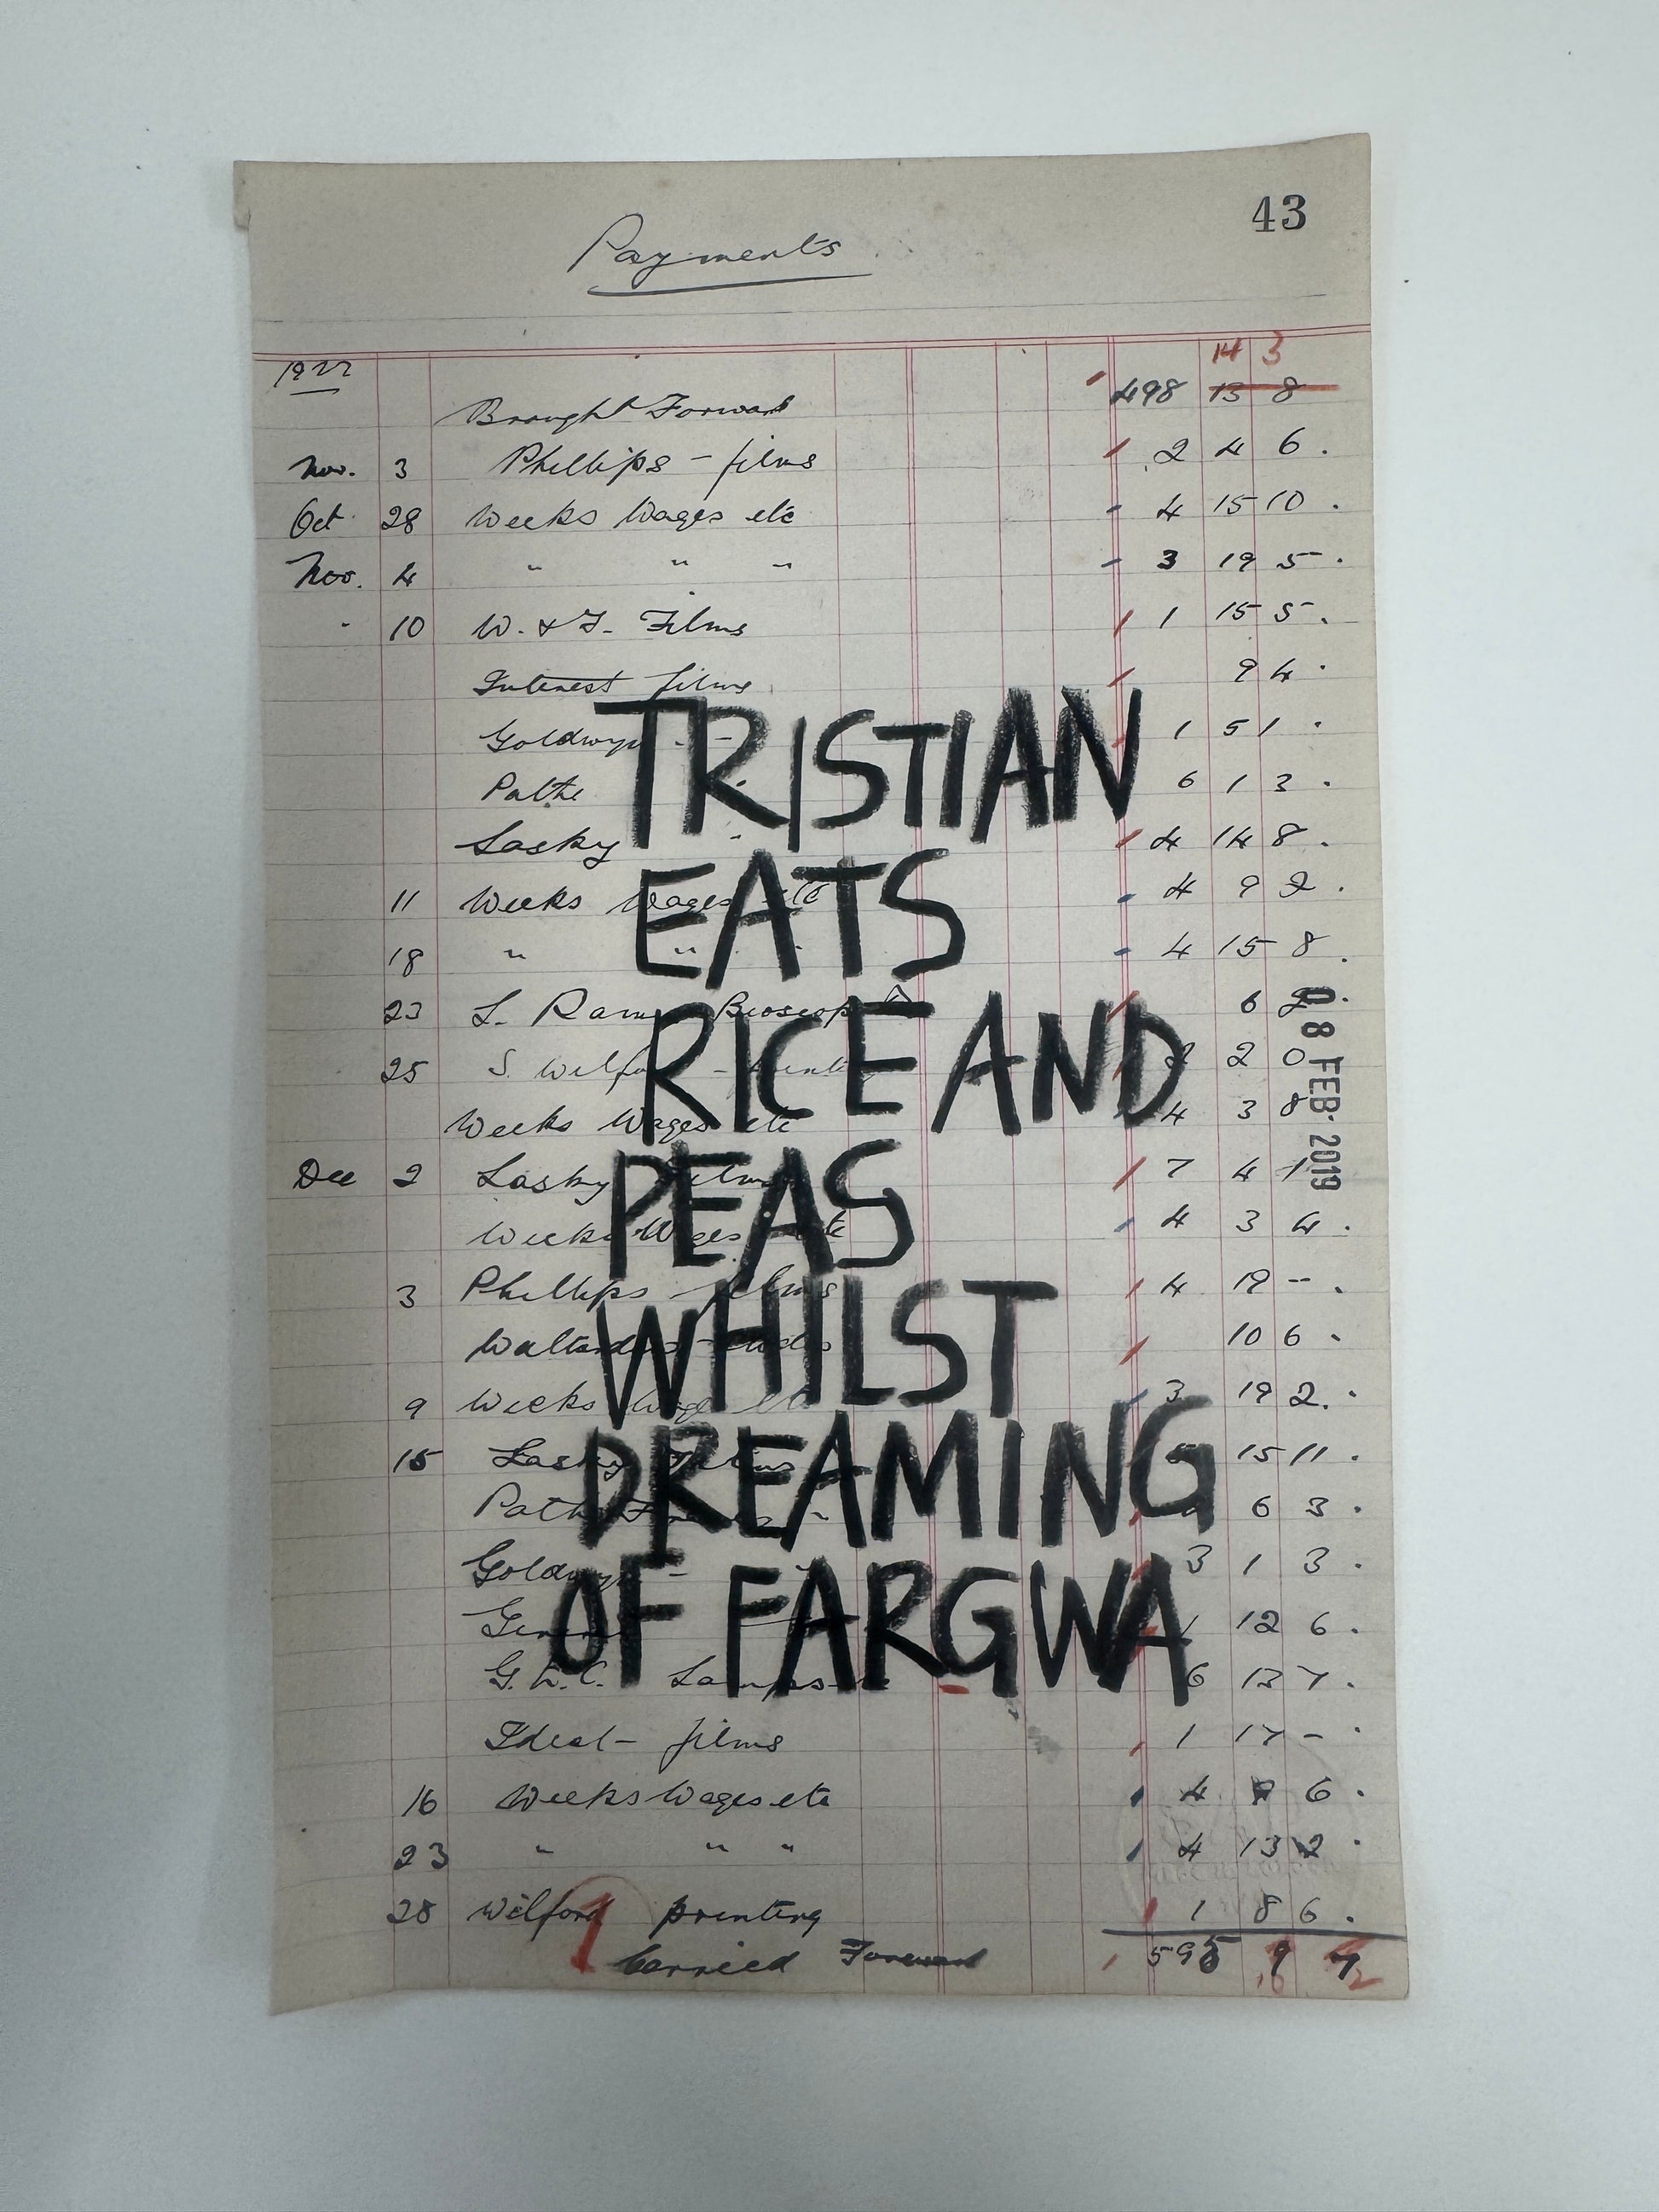 43
Payments
14 3
1922
Brought Forward 498 13 8
Nov. 3 Phillips - films 2 4 6.
Oct 28 Weeks Wages etc 4 15 10.
Nov. 4 " " " 3 19 5.
" 10 W. & F. Films 1 15 5.
Interest films 9 4.
Goldwyn " 1 5 1.
Pathe " 6 1 3.
Lasky " 4 14 8.
11 Weeks Wages etc 4 9 2.
18 " " " 4 15 8.
23 Bioscope 6
25 S. Wilford - printing 2 2 0
Weeks Wages etc 4 3 8
Dec 2 Lasky films 7 4 1
Weeks Wages etc 4 3 4.
3 Phillips films 4 19 -.
10 6.
9 Weeks Wages etc 3 19 2.
15 Lasky Films 15 11.
Pathe 6 3.
Goldwyn - " 3 1 3.
1 12 6.
Lamps 6 13 7.
Ideal - films 1 17 -.
16 Weeks Wages etc 4 6.
23 " " " 4 13 2.
28 Wilford printing 1 8 6.
Carried Forward 595 9
TRISTIAN
EATS
RICE AND
PEAS
WHILST
DREAMING
OF FARGWA
08 FEB 2019